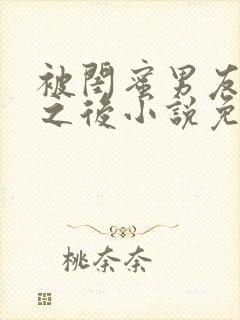 被閨蜜男友
之後小說免
桃奈奈